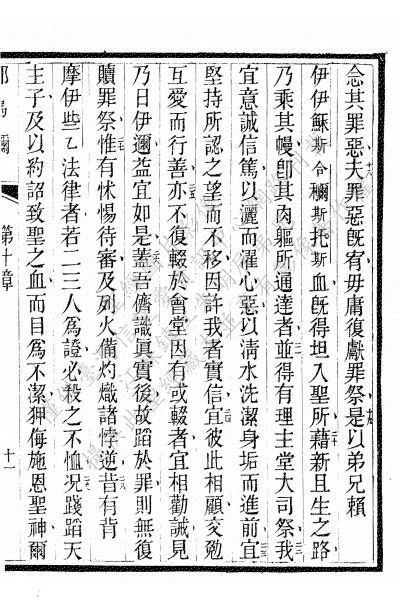 念其罪惡夫罪惡旣宥毋庸復獻罪祭是以弟兄賴
伊伊穌斯合穪斯托斯血旣得坦入聖所藉新且生之路
乃乘其幔卽其肉軀所通達者並得有理主堂大司祭我
宜意誠信篤以灑而濯心惡以淸水洗潔身垢而進前宜
堅持所認之望而不移因許我者實信宜彼此相顧交勉
互愛而行善亦不復輟於會堂因有或輟者宜相勸誡見
乃日伊邇益宜如是蓋吾儕識眞實後故蹈於罪則無復
贖罪祭惟有怵惕待審及列火備灼熾諸悖逆昔有背
摩伊些乙法律者若二三人爲證必殺之不恤况踐蹈天
主子及以約詔致聖之血而目爲不潔狎侮施恩聖神爾
第十章
十一